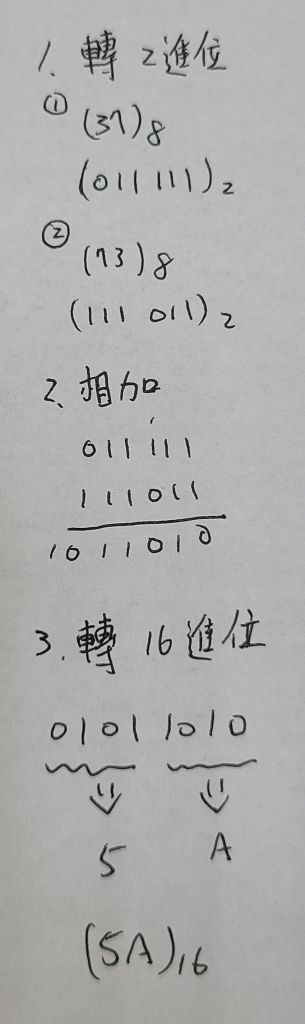 1. 轉 2進位
① (37)8
(011 111)2
② (73)8
(111 011)2
2. 相加
011111
111011
1011010
3. 轉 16 進位
0101 1010
5 A
(5A)16